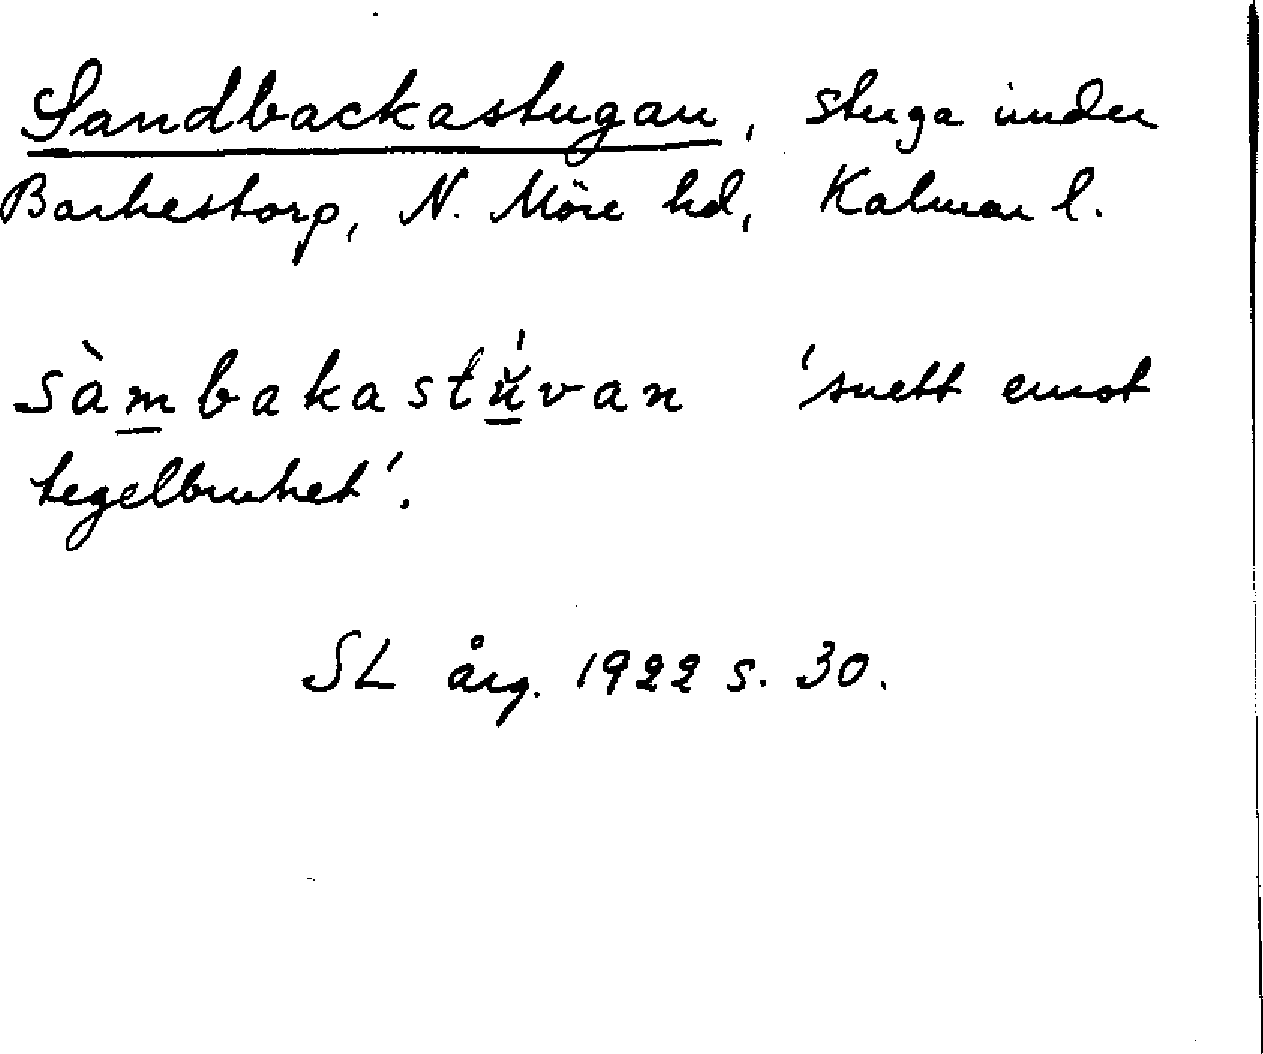 Sandbackastugan, stuga under
Barkestorp, N. Möre hd, Kalmar l.
sàmbakastŭ́van 'snett emot
tegelbruket'.
SL årg. 1922 s. 30.